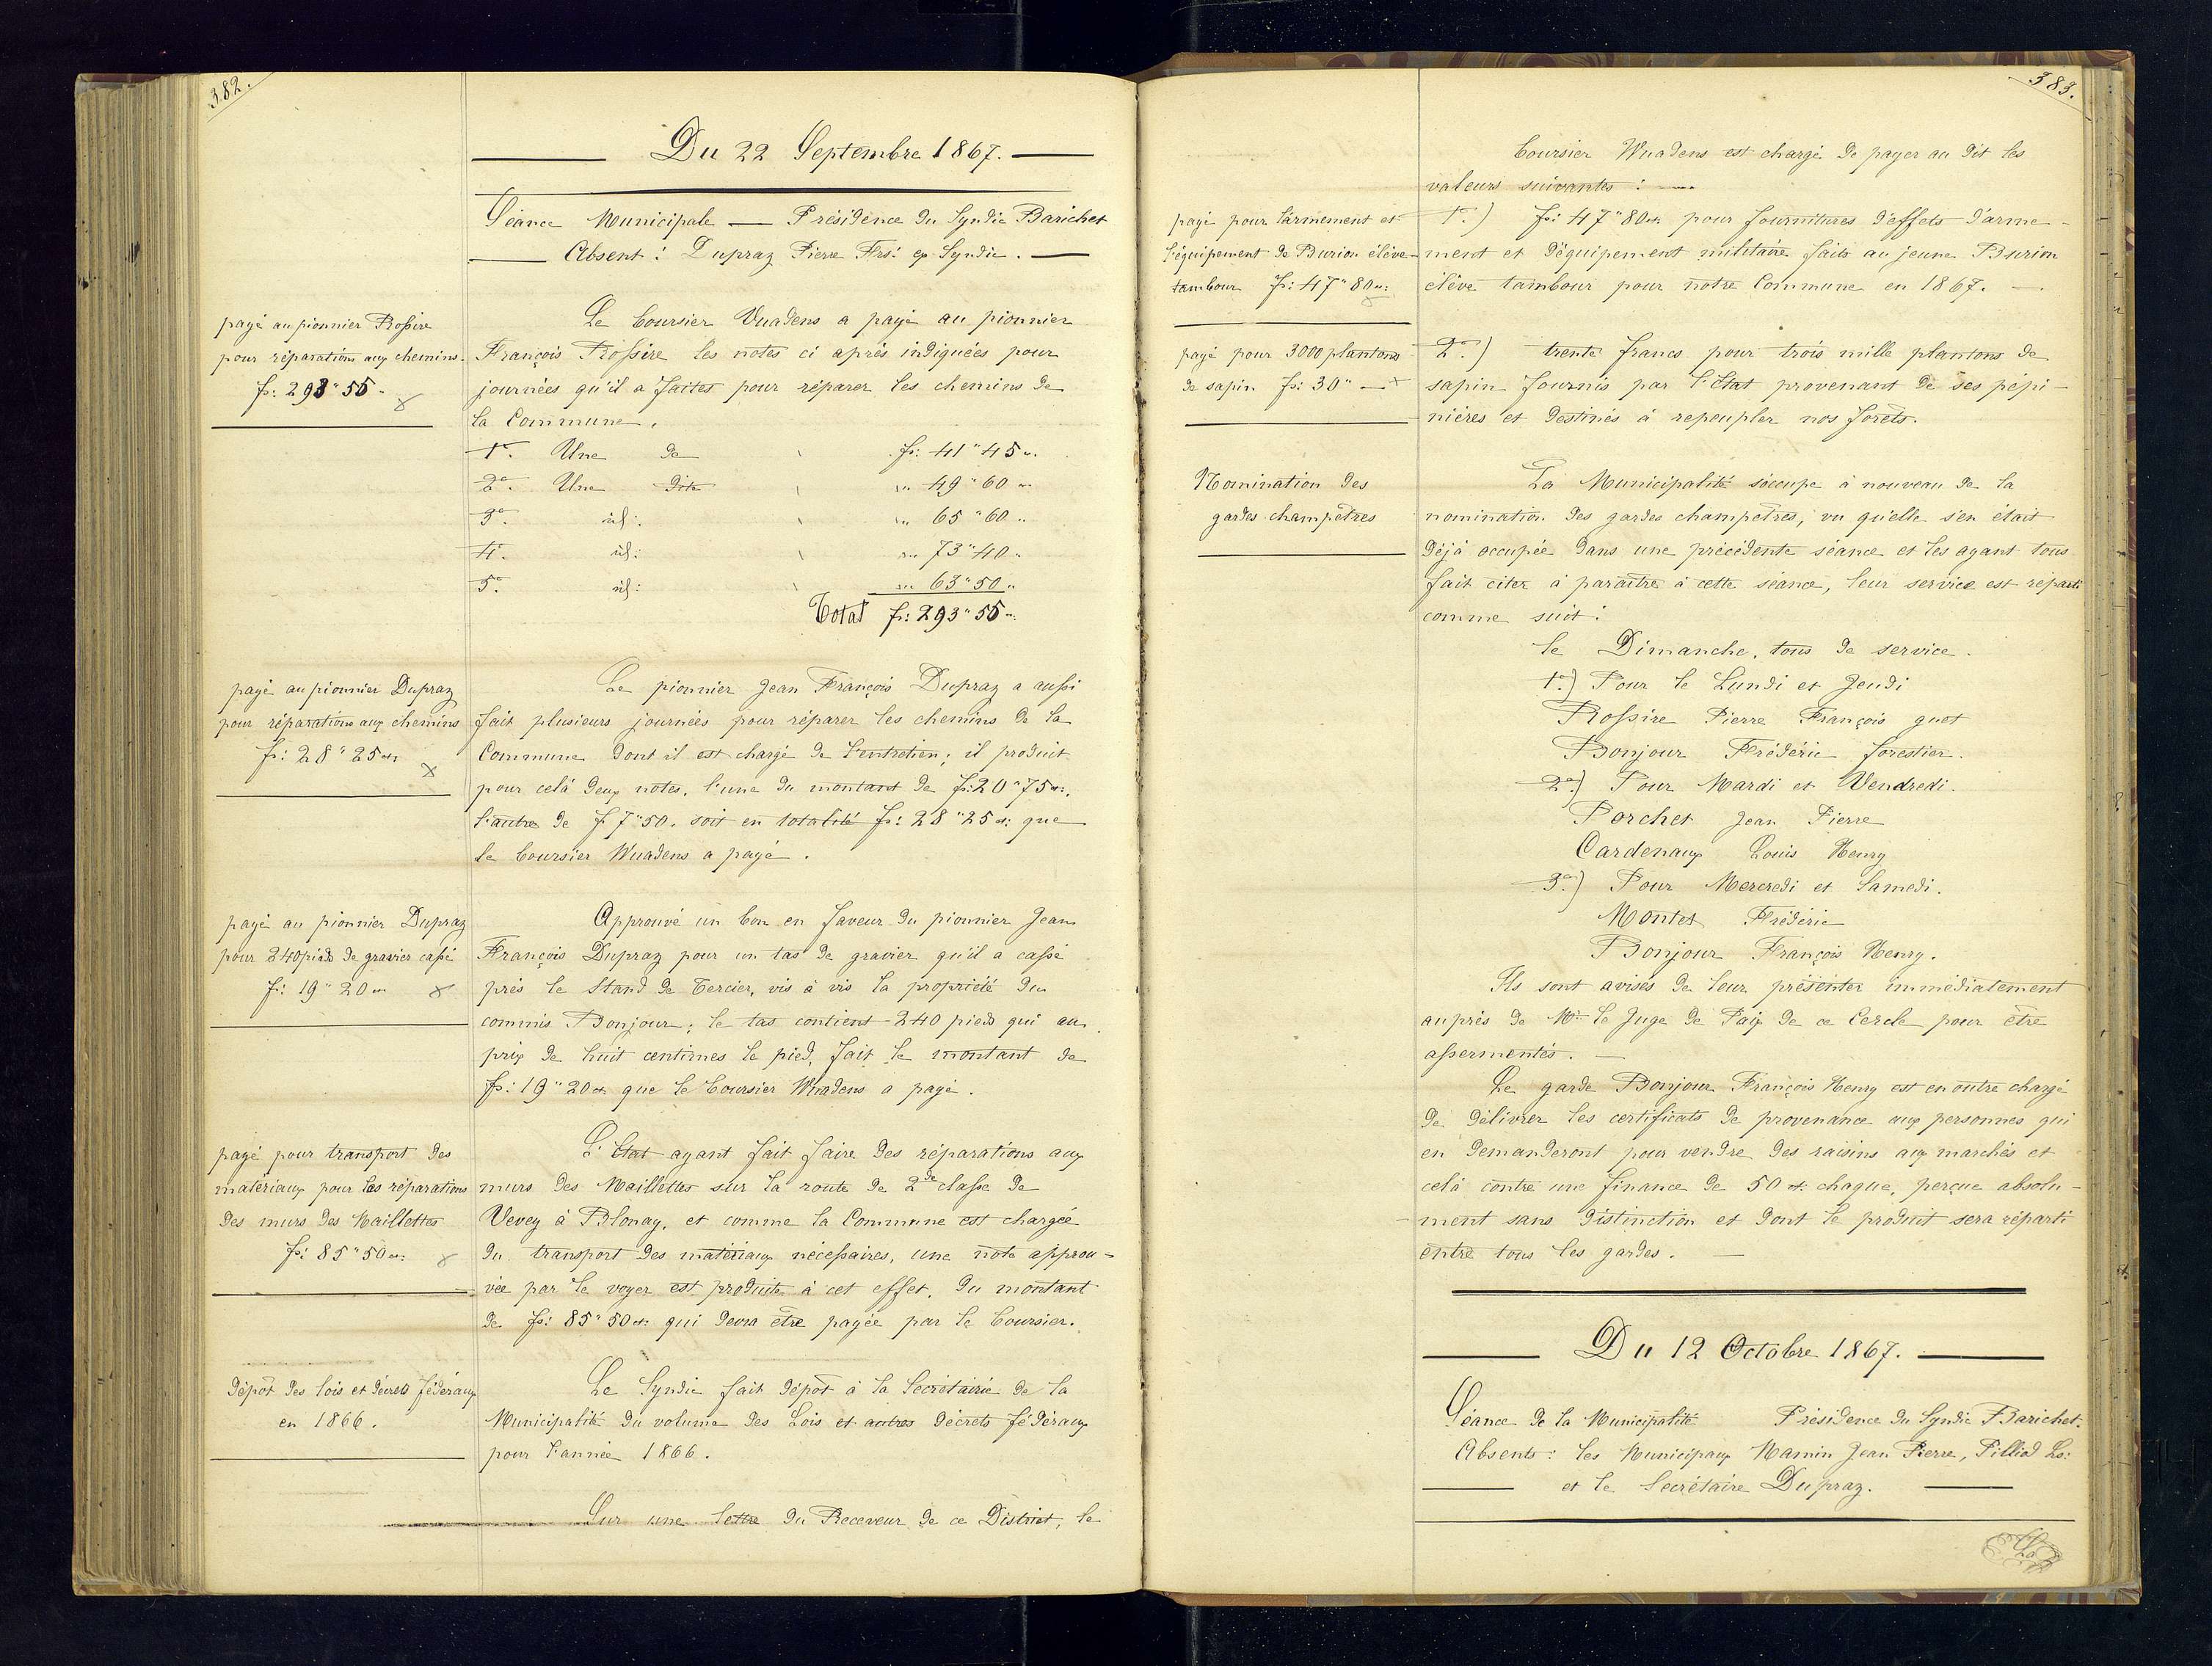 382.
Du 22 Septembre 1867.
Séance Municipale — Présidence du Syndic Barichet
Absent : Dupraz Pierre Frs: ex Syndic.
payé au pionnier Rossire
pour réparations aux chemins.
fr: 293"55
Le boursier Vuadens a payé au pionnier
François Rossire les notes ci après indiquées pour
journées qu'il a faites pour réparer les chemins de
la Commune.
1°. Une de fr: 41"45
2°. Une dite " 49"60
3°. id: " 65"60
4°. id: " 73"40
5°. id: " 63"50
Total fr: 293"55
payé au pionnier Dupraz
pour réparations aux chemins
fr: 28"25 cts
Le pionnier Jean François Dupraz a aussi
fait plusieurs journées pour réparer les chemins de la
Commune dont il est chargé de l'entretien; il produit
pour celà deux notes, l'une du montant de fr: 20"75 cts,
l'autre de f 7"50. soit en totalité fr: 28"25 ct: que
le boursier Wuadens a payé.
payé au pionnier Dupraz
pour 240 pieds de gravier cassé
fr: 19"20 cts
Approuvé un bon en faveur du pionnier Jean
François Dupraz pour un tas de gravier qu'il a cassé
près le Stand de Tercier, vis à vis la propriété du
commis Bonjour; le tas contient 240 pieds qui au
prix de huit centimes le pied, fait le montant de
fr: 19"20 ct. que le boursier Wuadens a payé.
payé pour transport des
matériaux pour les réparations
des murs des Maillettes
fr: 85"50 cts:
L'Etat ayant fait faire des réparations aux
murs des Maillettes sur la route de 2de classe de
Vevey à Blonay, et comme la Commune est chargée
du transport des matériaux nécessaires, une note approu=
vée par le voyer est produite à cet effet, du montant
de fr: 85"50 ct: qui devra être payée par le boursier.
dépôt des lois et décrets fédéraux
en 1866.
Le Syndic fait dépôt à la Secrétairie de la
Municipalité du volume des Lois et autres décrets fédéraux
pour l'année 1866.
Sur une lettre du Receveur de ce District, le
383.
boursier Wuadens est chargé de payer au dit les
valeurs suivantes :
payé pour l'armement et
l'équipement de Burion élève
tambour fr: 47"80 ct:
1°.) fr: 47"80 ct. pour fournitures d'effets d'arme-
ment et d'équipement militaire faits au jeune Burion
élève tambour pour notre Commune en 1867.
payé pour 3000 plantons
de sapin fr: 30"
2°.) trente francs pour trois mille plantons de
sapin fournis par l'Etat provenant de ses pépi-
nières et destinés à repeupler nos forêts.
Nomination des
gardes champêtres
La Municipalité s'occupe à nouveau de la
nomination des gardes champêtres, vu qu'elle s'en était
déjà occupée dans une précédente séance et les ayant tous
fait citer à paraître à cette séance, leur service est réparti
comme suit :
le Dimanche, tous de service.
1°.) Pour le Lundi et Jeudi
Rossire Pierre François guet
Bonjour Frédéric forestier.
2°.) Pour Mardi et Vendredi.
Porchet Jean Pierre
Cardenaux Louis Henry
3°.) Pour Mercredi et Samedi.
Montet Frédéric
Bonjour François Henry.
Ils sont avisés de leur présenter immédiatement
auprès de Mr le Juge de Paix de ce Cercle pour être
assermentés.
Le garde Bonjour François Henry est en outre chargé
de délivrer les certificats de provenance aux personnes qui
en demanderont pour vendre des raisins aux marchés et
celà contre une finance de 50 ct: chaque, perçue absolu-
ment sans distinction et dont le produit sera réparti
entre tous les gardes.
Du 12 Octobre 1867.
Séance de la Municipalité Présidence du Syndic Barichet.
Absents : les Municipaux Mamin Jean Pierre, Pilliod Ls:
et le Secrétaire Dupraz.